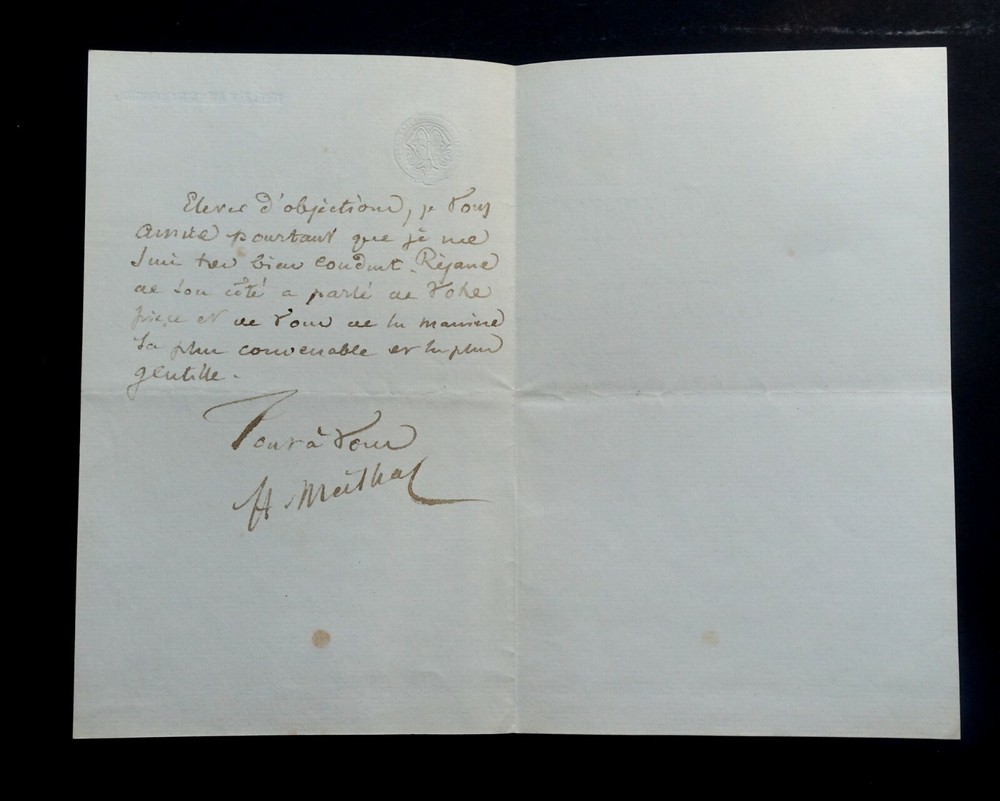 Elever d'objections, je vous
assure pourtant que je me
suis tres bien conduit. Réjane
de son côté a parlé de votre
pièce et de vous de la manière
la plus convenable et la plus
gentille.
Tout à vous
H. Meilhac